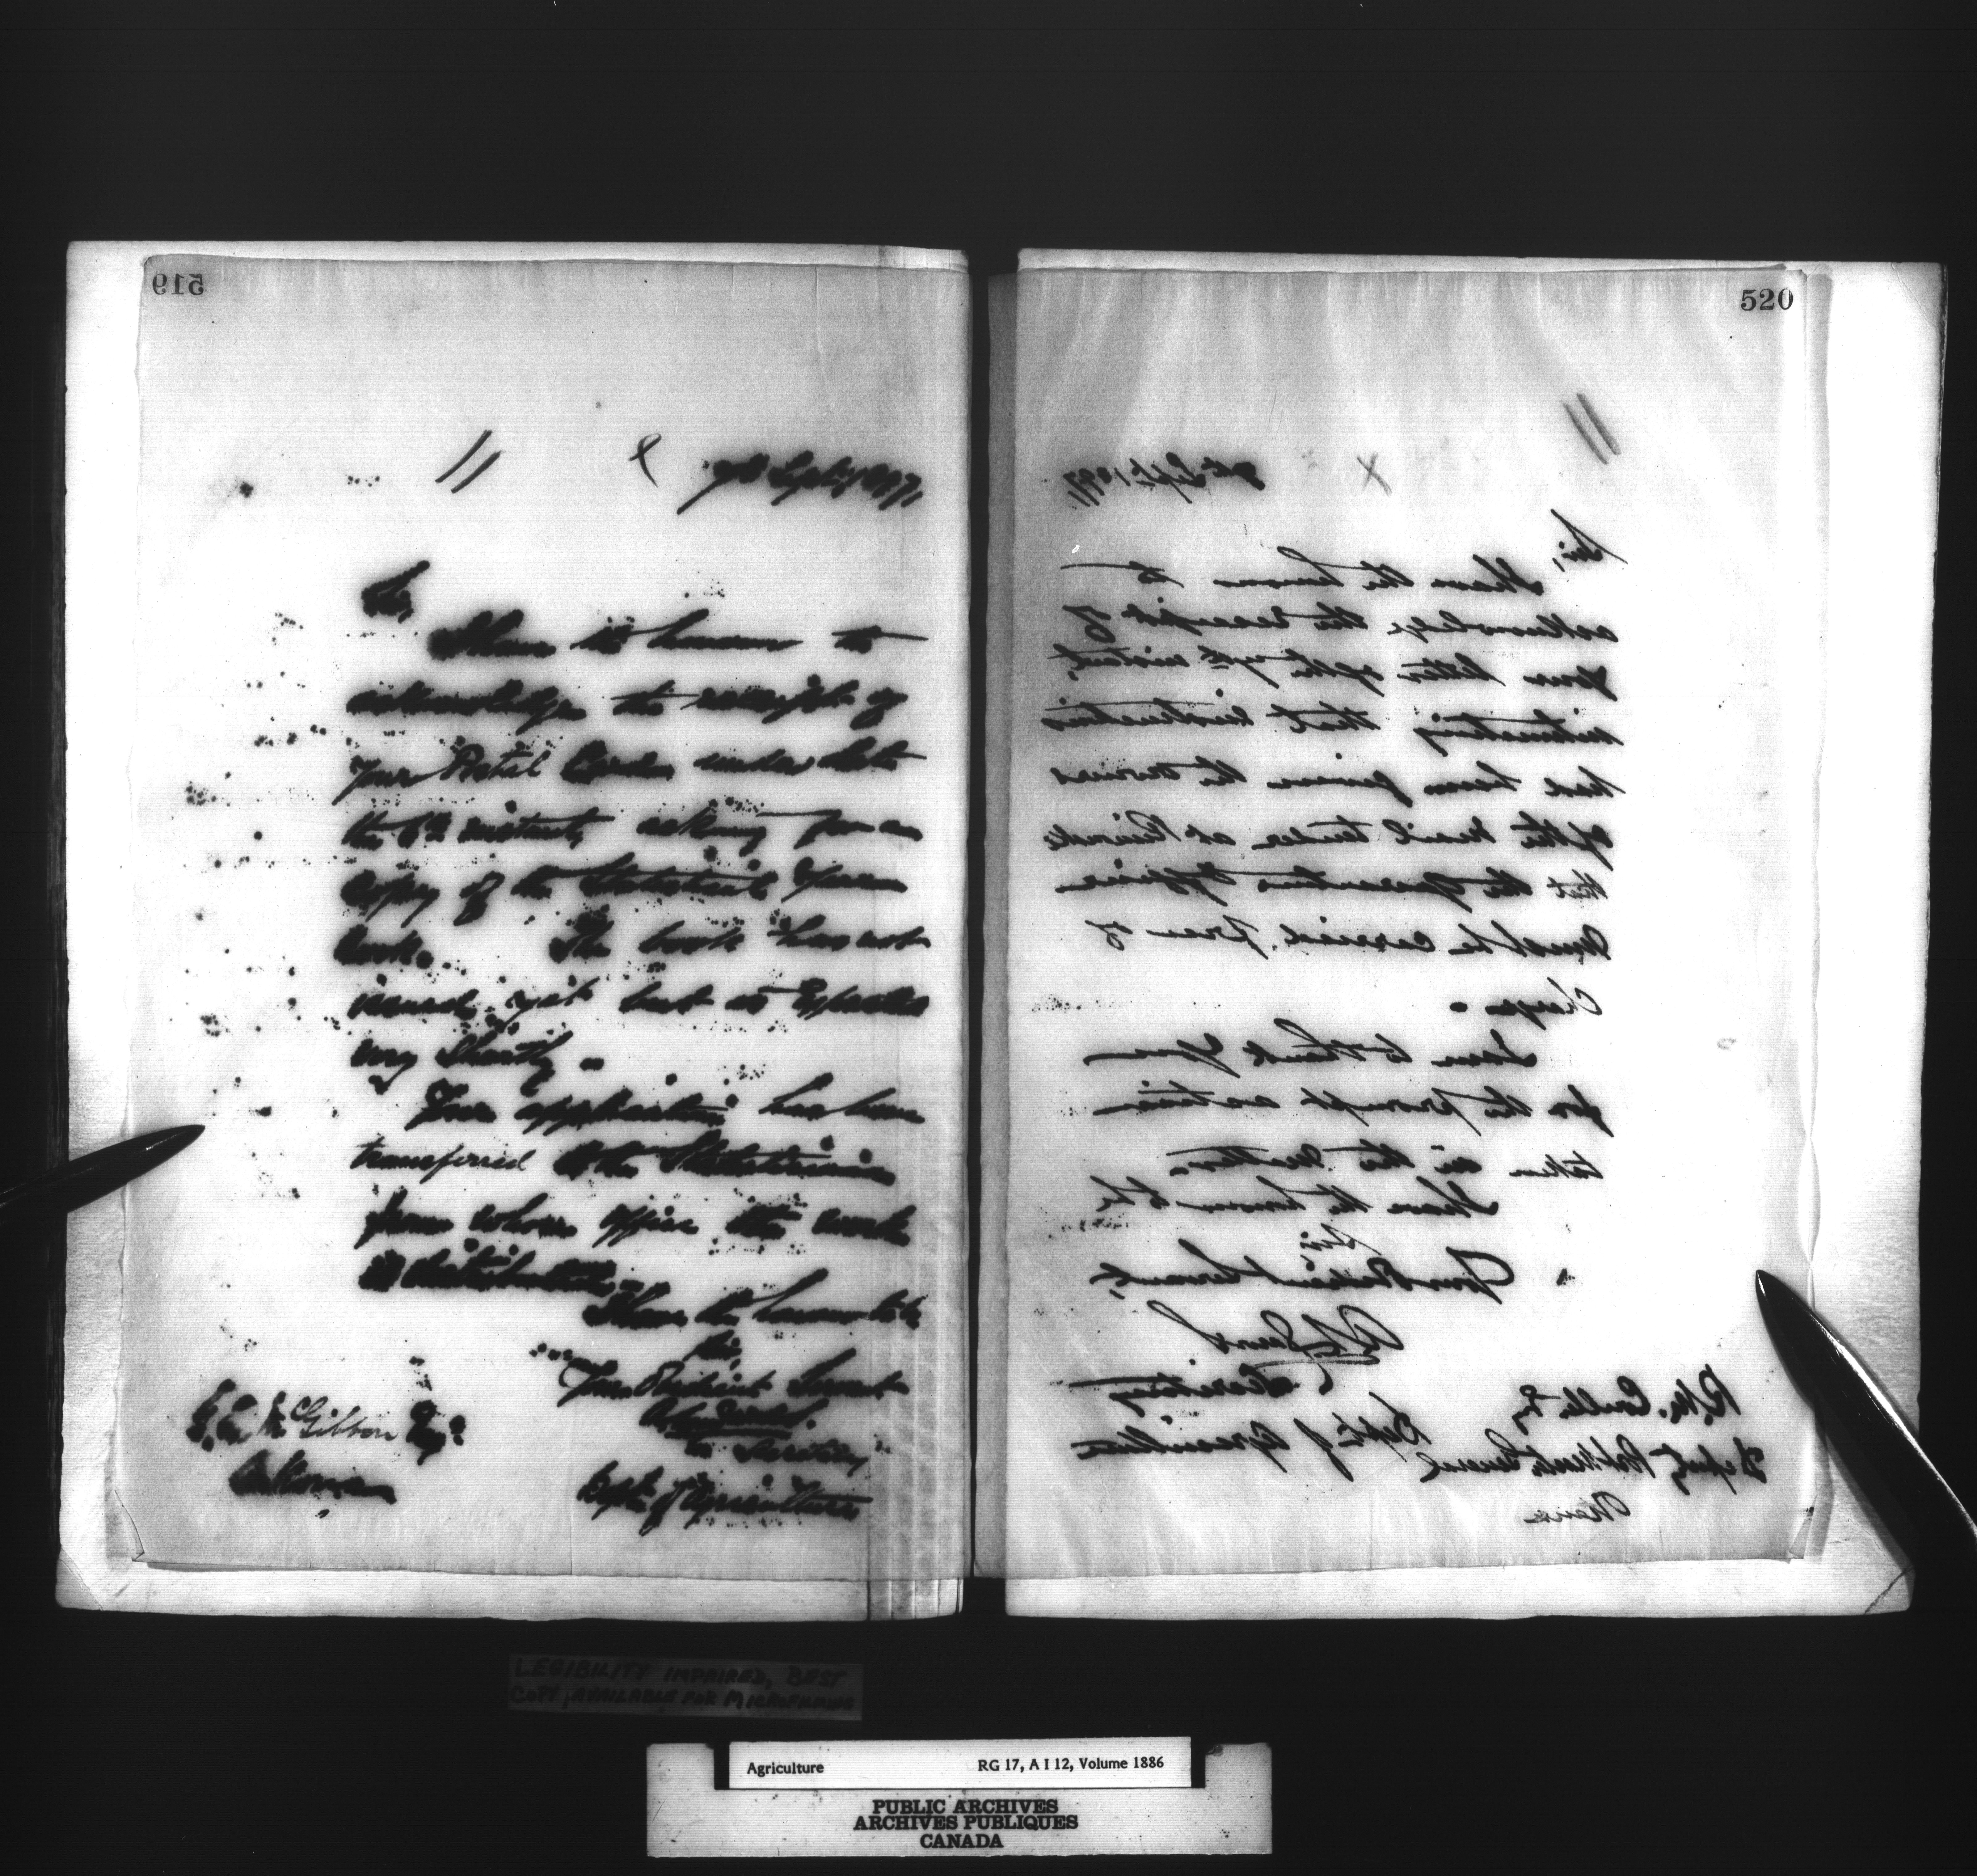 519
7th Sept. 1897,
Sir,
I have the honour to
acknowledge the receipt of
your Postal Card under date
the 6th instant, asking for a
copy of the Statistical Year
book. The book has not
issued yet but is expected
very shortly.
Your application has been
transferred to the Statistician
from whose office the work
is distributed.
I have the honour to be
Sir,
Your Obedient Servant
Secretary
Dept. of Agriculture
McGibbon Esq.
520
Sept. 1897,
Sir,
I have the honour to
acknowledge the receipt of
your letter of the 7th instant,
intimating that instructions
had been given the owners
of the mail tender at Rimouski
that the Quarantine Officer
must be carried free of
Charge.
I am to thank you
for the prompt action
taken in the matter.
I have the honour to be
Sir,
Your Obedient Servant,
Secretary
Dept. of Agriculture
R. M. Coulter Esq
Deputy Postmaster General
LEGIBILITY IMPAIRED, BEST
COPY AVAILABLE FOR MICROFILMING
Agriculture RG 17, A I 12, Volume 1886
PUBLIC ARCHIVES
ARCHIVES PUBLIQUES
CANADA